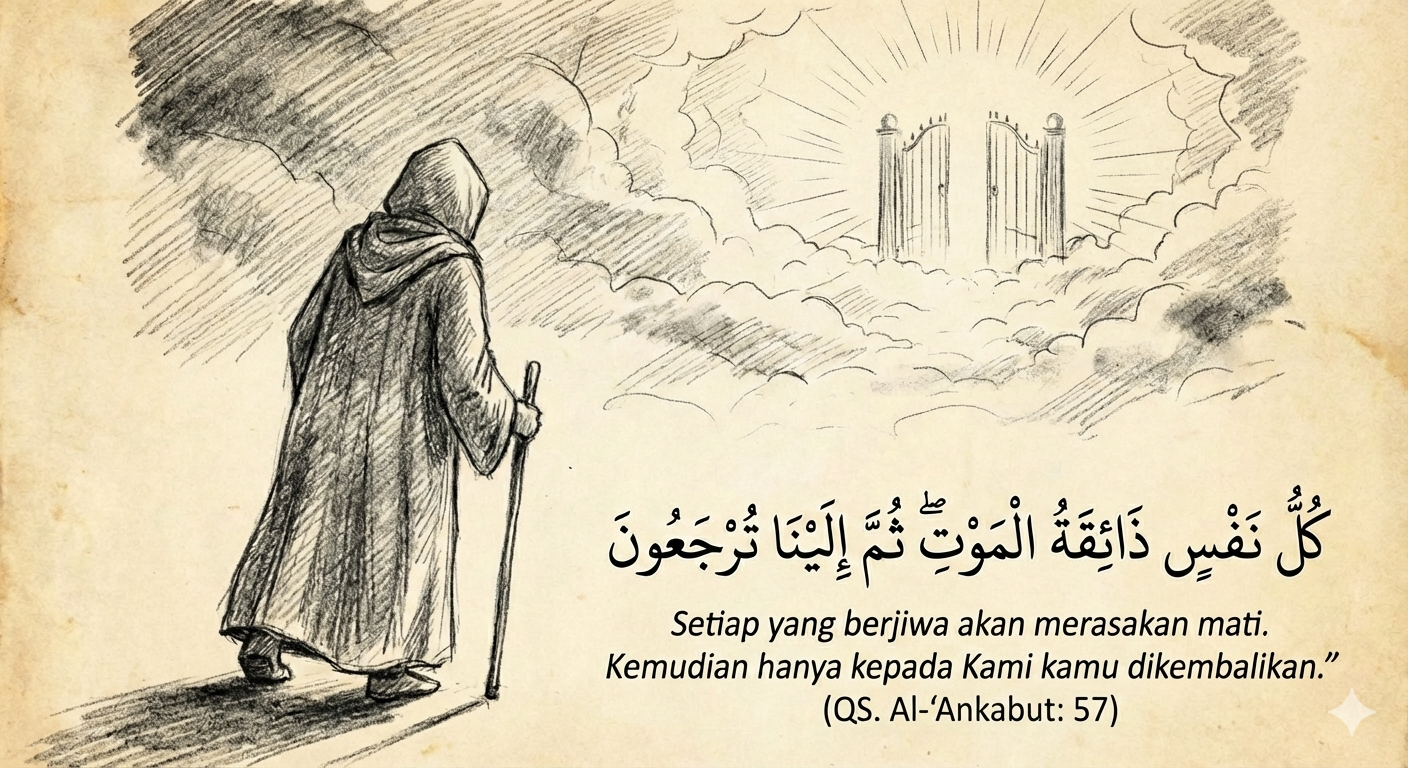 كُلُّ نَفْسٍ ذَائِقَةُ الْمَوْتِ ۖ ثُمَّ إِلَيْنَا تُرْجَعُونَ
Setiap yang berjiwa akan merasakan mati.
Kemudian hanya kepada Kami kamu dikembalikan.”
(QS. Al-‘Ankabut: 57)